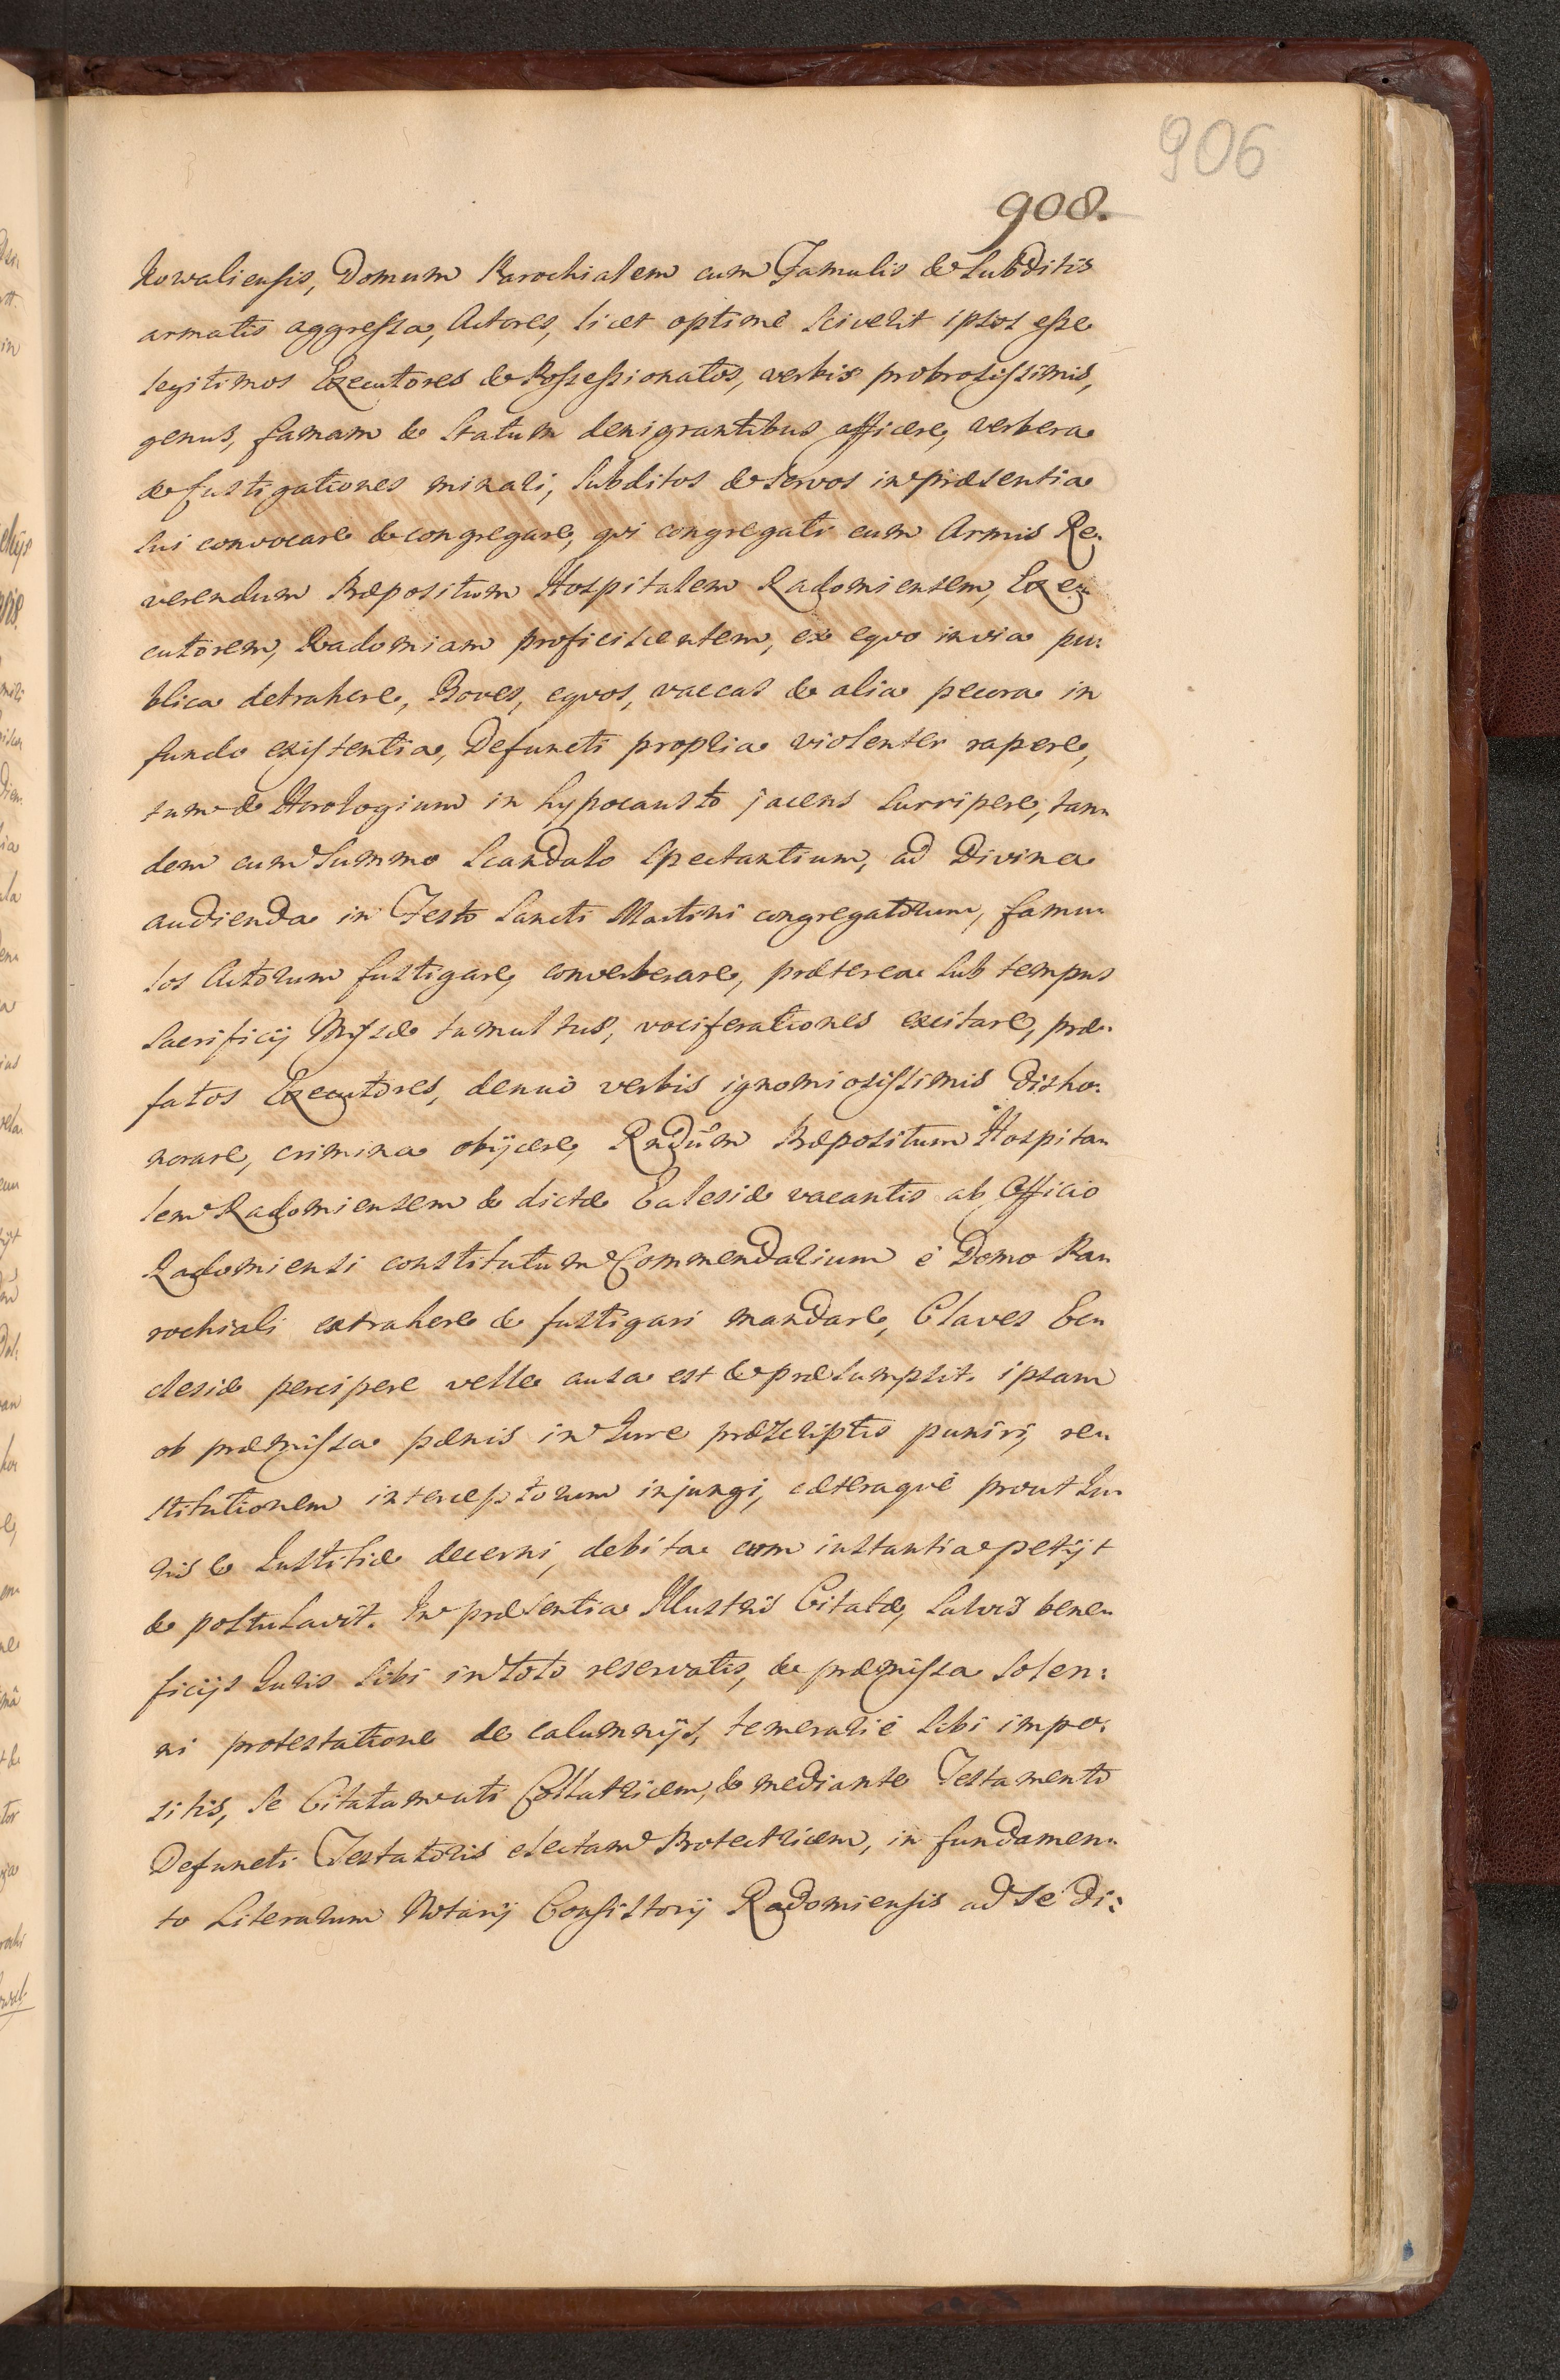 906
908.
Kowaliensis, Domum Parochialem cum Famulis & Subditis
armatis aggressa, Actores, licet optimè sciverit ipsos esse
legitimos Executores & Possessionatos, verbis probrosissimis,
genus, famam & statum denigrantibus afficere, verbera
& fustigationes minari, subditos & servos in præsentia
sui convocare & congregare, qvi congregati cum Armis Re:
verendum Præpositum Hospitalem Radomiensem, Exe:
cutorem, Radomiam proficiscentem, ex eqvo in via pu:
blica detrahere, Boves, eqvos, vaccas & alia pecora in
fundo existentia, Defuncti propria violenter rapere,
tum & Horologium in hypocausto jacens surripere, tan:
dem cum summo scandalo spectantium, ad Divina
audienda in Festo Sancti Martini congregatorum, famu:
los Actorum fustigare, converberare, præterea sub tempus
Sacrificij Missæ tumultus, vociferationes excitare, præ:
fatos Executores, denuò verbis ignomiosissimis disho:
norare, crimina obijcere, Rndum Præpositum Hospita:
lem Radomiensem & dictæ Eclesiæ vacantis ab Officio
Radomiensi constitutum Commendarium è Domo Pa:
rochiali extrahere & fustigari mandare, Claves Ec:
clesiæ percipere velle ausa est & præsumpsit. ipsam
ob præmissa pænis in Jure præscriptis puniri, re:
stitutionem interceptorum injungi, cæteraqvè prout Ju:
ris & Justitiæ decerni, debita cum instantia petijt
& postulavit. In præsentia Illustris Citatæ, salvis bene:
ficijs Juris sibi in toto reservatis, & præmissa solen:
ni protestatione de calumnijs, temerariè sibi impo:
sitis, se Citatam uti Collatricem, & mediante Testamento
Defuncti Testatoris electam Protectricem, in fundamen:
to Literarum Notarij Consistorij Radomiensis ad se di: